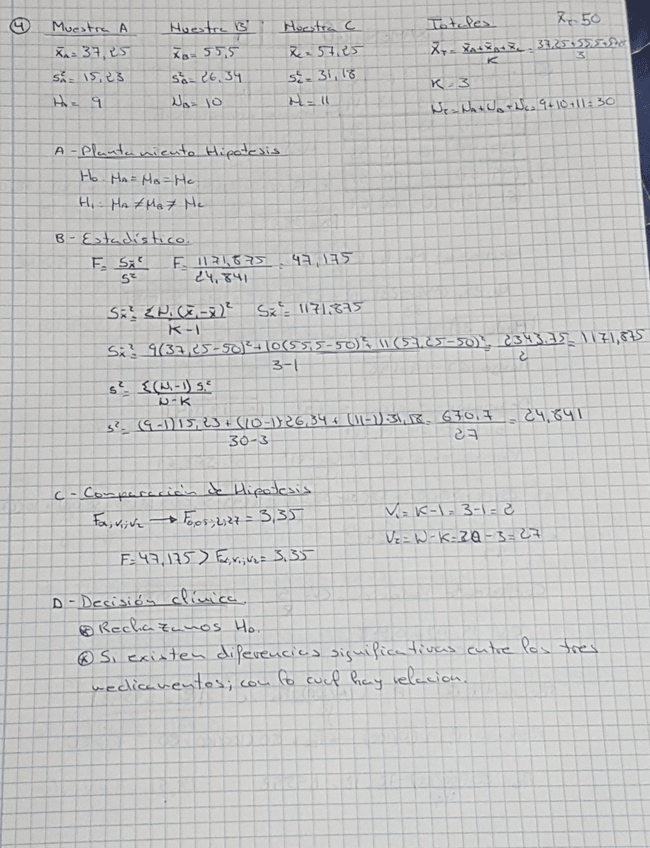 ④ Muestra A Muestra B Muestra C Totales x̄t=50
x̄A = 37,25 x̄B = 55,5 x̄c = 57,25 x̄T = (x̄A+x̄B+x̄c)/K = (37,25+55,5+57,25)/3
s²A = 15,23 s²B = 26,34 s²c = 31,18 K = 3
NA = 9 NB = 10 Nc = 11 Nt = NA+NB+Nc = 9+10+11 = 30
A - Plantamiento Hipotesis
H0: MA = MB = Mc
H1: MA ≠ MB ≠ Mc
B - Estadístico.
F = Sx̄²/S² F = 1171,875/24,841 = 47,175
Sx̄² = Σ Ni (x̄i - x̄)²/K-1 Sx̄² = 1171,875
Sx̄² = 9(37,25-50)²+10(55,5-50)²+11(57,25-50)²/3-1 = 2343,75/2 = 1171,875
s² = Σ(Ni-1) Si²/N-K
s² = (9-1)15,23+(10-1)26,34+(11-1)31,18/30-3 = 670,7/27 = 24,841
C - Comparación de Hipotesis
Fα,V1,V2 → F0,05;2;27 = 3,35 V1 = K-1 = 3-1 = 2
F = 47,175 > Fα,V1,V2 = 3,35 V2 = N-K = 30-3 = 27
D - Decisión clínica
⊗ Rechazamos H0.
⊗ Si existen diferencias significativas entre los tres
medicamentos; con lo cual hay relacion.